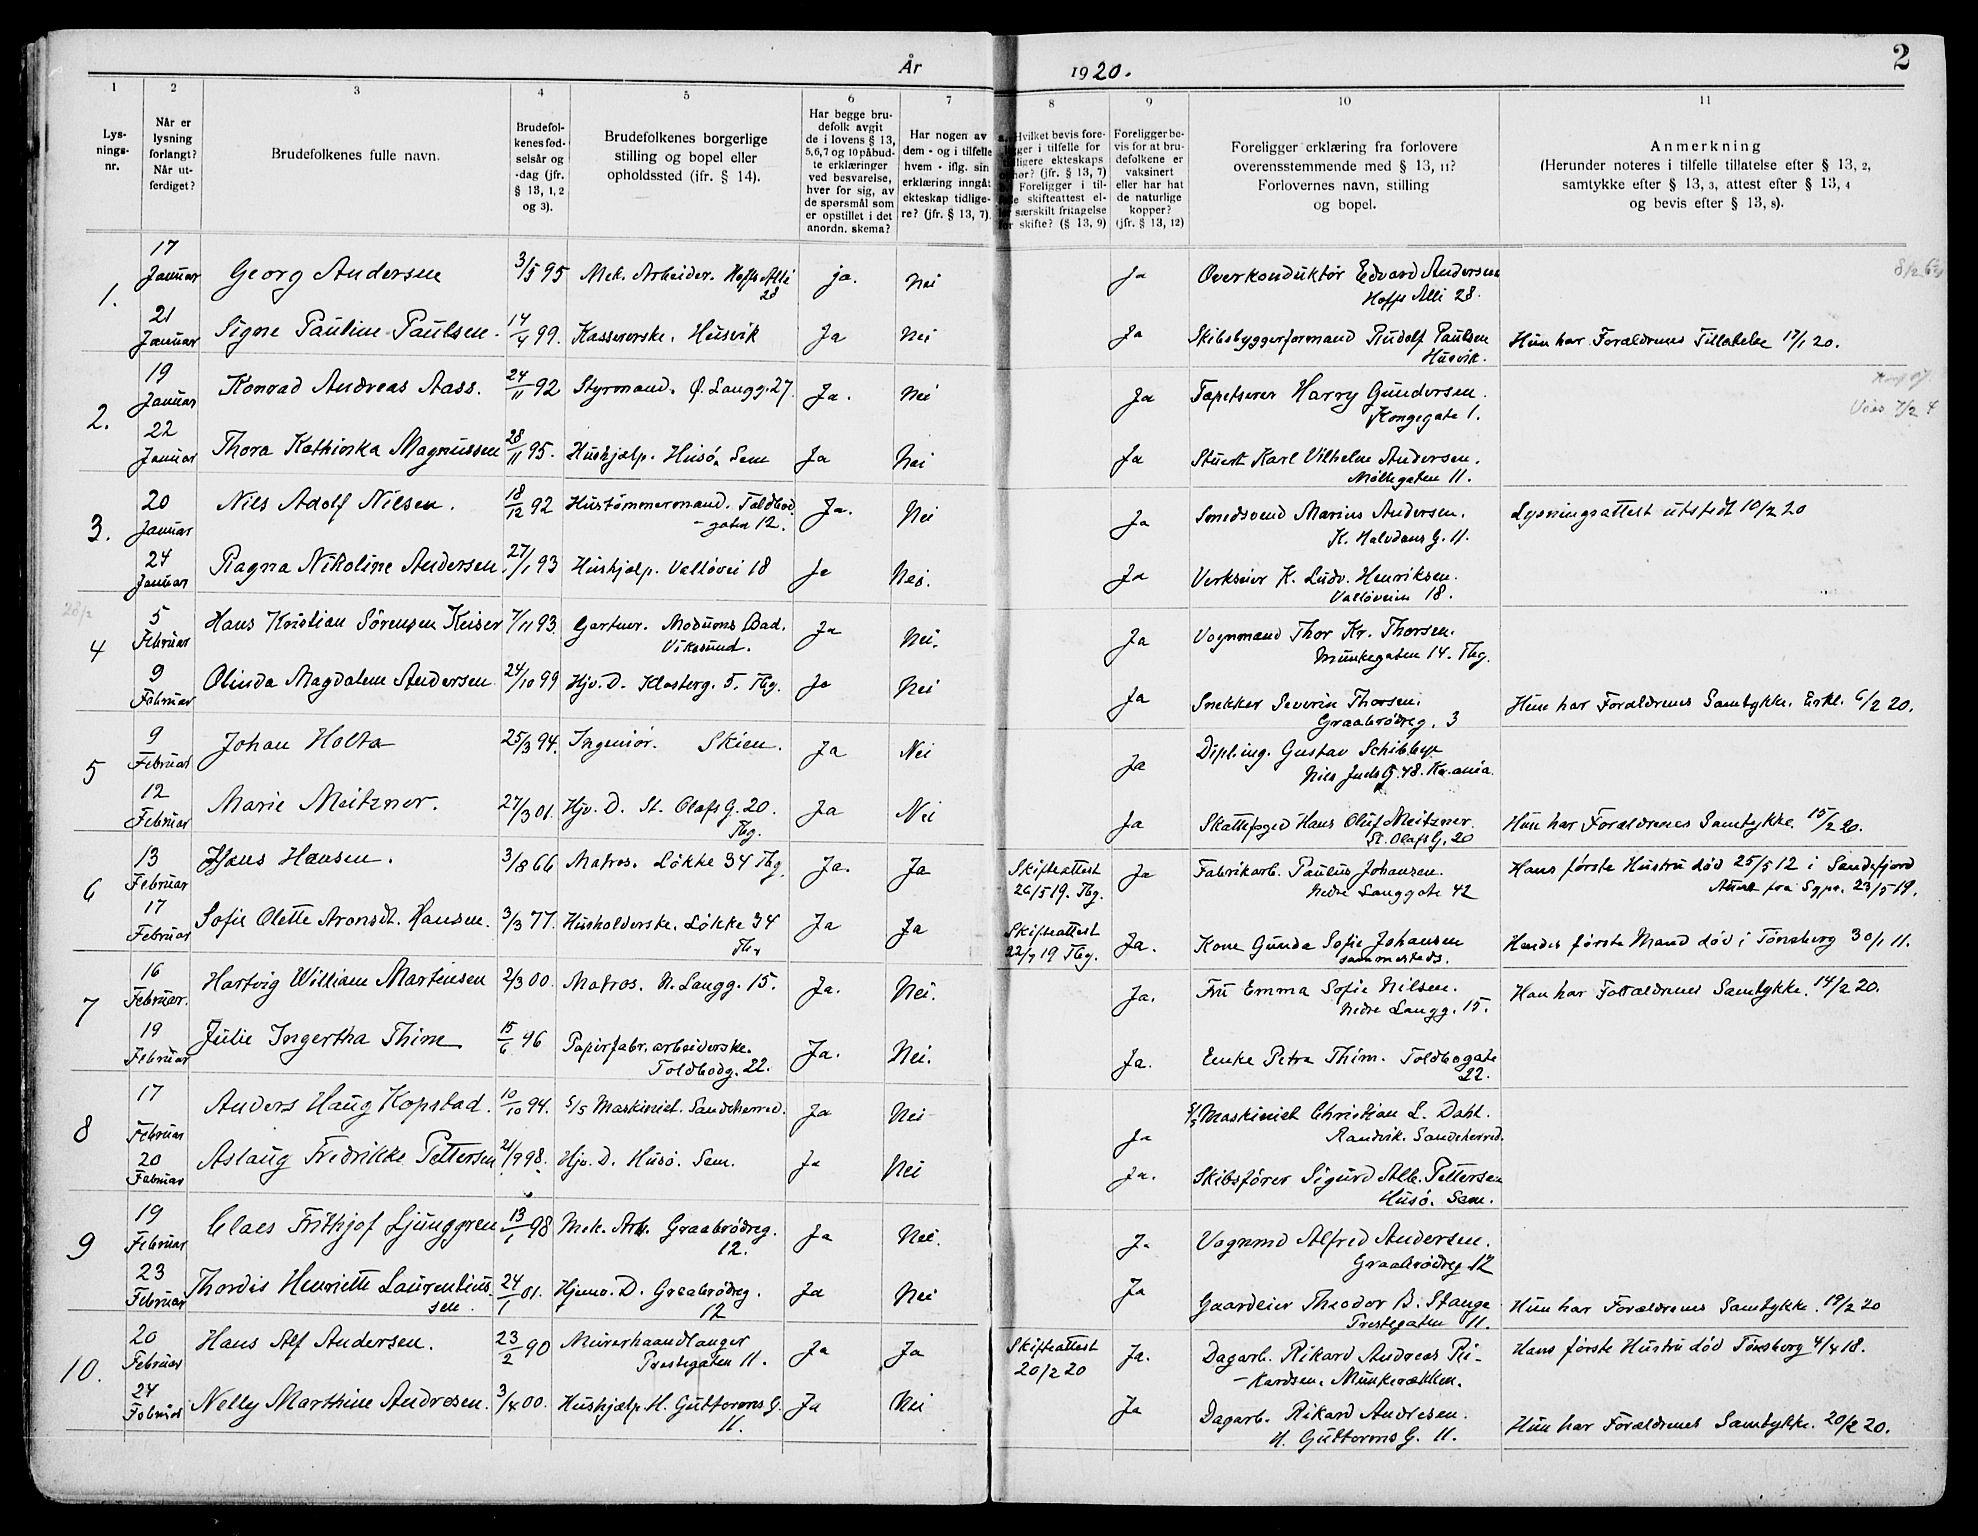 År 1920.
2
1 2 3 4 5 6 7 8 9 10 11
Lys-
nings-
nr.
Når er
lysning
forlangt?
Når ut-
ferdiget?
Brudefolkenes fulle navn.
Brudefol-
kenes fød-
selsår og
-dag (jfr.
§ 13, 1, 2
og 3).
Brudefolkenes borgerlige
stilling og bopel eller
opholdssted (ifr. § 14).
Har begge bru-
defolk avgit
de i lovens § 13,
5,6,7 og 10 påbud-
te erklæringer
ved besvarelse,
hver for sig, av
de spørsmål som
er opstillet i det
anordn. skema?
Har nogen av
dem - og i tilfelle
hvem - iflg. sin
erklæring inngått
ekteskap tidlige-
re? (jfr. § 13, 7).
Hvilket bevis fore-
ligger i tilfelle for
tidligere ekteskaps
ophør? (jfr. § 13, 7)
Foreligger i til-
felle skifteattest el-
ler særskilt fritagelse
for skifte? (§ 13, 9)
Foreligger be-
vis for at bru-
defolkene er
vaksinert
eller har hat
de naturlige
kopper?
(jfr. § 13, 12)
Foreligger erklæring fra forlovere
overensstemmende med § 13, 11?
Forlovernes navn, stilling
og bopel.
Anmerkning
(Herunder noteres i tilfelle tillatelse efter § 13, 2,
samtykke efter § 13, 3, attest efter § 13, 4
og bevis efter § 13, 8).
1.
17 Januar Georg Andersen 3/5 95 Mek. Arbeider. Hoffs Alli 28 ja. Nei Ja Overkonduktør Edvard Andersen
Hoffs Alli 28.
21 Januar Signe Pauline Paulsen. 14/4 99. Kassererske. Husvik Ja Nei Ja Skibsbyggerformand Rudolf Paulsen Hun har Forældrenes Tillatelse 17/1 20.
Husvik.
2.
19 Januar Konrad Andreas Aass. 24/11 92 Styrmand. Ø. Langg. 27 Ja. Nei Ja Tapetserer Harry Gundersen.
Kongegate 1.
22 Januar Thora Kathinka Magnussen 28/11 95. Hushjælp. Husö. Sem Ja Nei Ja Stuert Karl Vilhelm Andersen.
Möllegaten 11.
3.
20 Januar Nils Adolf Nilsen. 18/12 92 Hustömmermand. Toldbod- Ja. Nei Ja Smedsvend Marius Andersen. Lysningsattest utstedt 10/2 20
gaten 12. K. Halvdans G. 11.
24 Januar Ragna Nikoline Andersen 27/1 93 Hushjælp. Vallövei 18 Ja Nei. Ja Verkseier K. Ludv. Henriksen.
Vallöveien 18.
28/2
4
5 Februar Hans Kristian Sörensen Keiser 7/11 93 Gartner. Modums Bad. Ja Nei. Ja Vognmand Thor Kr. Thorsen.
Vikesund. Munkegaten 14. Tbg.
9 Februar Olinda Magdalene Andersen 24/10 99 Hjv. D. Klosterg. 5. Tbg. Ja Nei Ja Snekker Severin Thorsen. Hun har Forældrenes Samtykke. Erkl. 6/2 20.
Graabrödreg. 3
5
9 Februar Johan Holta 25/3 94. Ingeniör. Skien. Ja Nei Ja Dipl. ing. Gustav Schibbye
Niels Juels G. 48. Kr.ania.
12 Februar Marie Meitzner. 27/3 01. Hjv. D. St. Olafs G. 20. Ja Nei Ja Skattefoged Hans Oluf Meitzner. Hun har Forældrenes Samtykke. 15/2 20.
Tbg. St. Olafs G. 20
6
13 Februar Hans Hansen. 3/8 66 Matros. Lökke 34 Tbg. Ja. Ja Skifteattest Ja Fabrikarb. Paulus Johansen. Hans første Hustru död 25/5 12 i Sandefjord
26/5 19. Tbg. Nedre Langgate 42 Attest fra Sgpr. 23/5 19.
17 Februar Sofie Olette Aronsdt. Hansen. 3/3 77. Husholderske. Lökke 34 Ja Ja Skifteattest Ja. Kone Gunda Sofie Johansen Hendes første Mand död i Tönsberg 30/1 11.
22/7 19 Tbg. sammesteds.
7
16 Februar. Hartvig William Martinsen 2/3 00. Matros. N. Langg. 15. Ja. Nei. Ja. Fru Emma Sofie Nilsen. Han har Forældrenes Samtykke. 14/2 20.
Nedre Langg. 15.
19 Februar Julie Ingertha Thime 15/6 96 Papirfabr. arbeiderske. Ja. Nei. Ja. Enke Petra Thim. Toldbogate
Toldbodg. 22. 22.
8
17 Februar Anders Haug Kopstad. 10/10 94. S/S Maskinist. Sandeherred. Ja Nei Ja S/S Maskinist Christian L. Dahl.
Ranvik. Sandeherred.
20 Februar Aslaug Fredrikke Pettersen 21/9 98. Hjv. D. Husö. Sem. Ja Nei Ja. Skibsfører Sigurd Alb. Pettersen
Husö. Sem.
9
19 Februar Claes Frithjof Ljunggren 13/1 98 Mek. Arb. Graabrödreg. Ja Nei. Ja Vognmd Alfred Andersen.
12. Graabrödreg 12
23 Februar Thordis Henriette Laurentius- 24/1 01. Hjemv. D. Graabrödreg. Ja Nei Ja Gaardeier Theodor B. Stange Hun har Forældrenes Samtykke. 19/2 20
sen. 12 Prestegaten 11.
10.
20 Februar Hans Alf Andersen. 23/2 90 Murerhaandlanger Ja Ja Skifteattest Ja. Dagarb. Rikard Andreas Ri- Hans første Hustru död Tönsberg 4/4 18.
Prestegaten 11. 20/2 20 kardsen. Munkerækken.
24 Februar Nelly Marthine Andresen. 3/4 00. Hushjælp. H. Guttorms G. Ja Nei Ja Dagarb. Rikard Andresen. Hun har Forældrenes Samtykke. 20/2 20.
11. H. Guttorms G. 11.